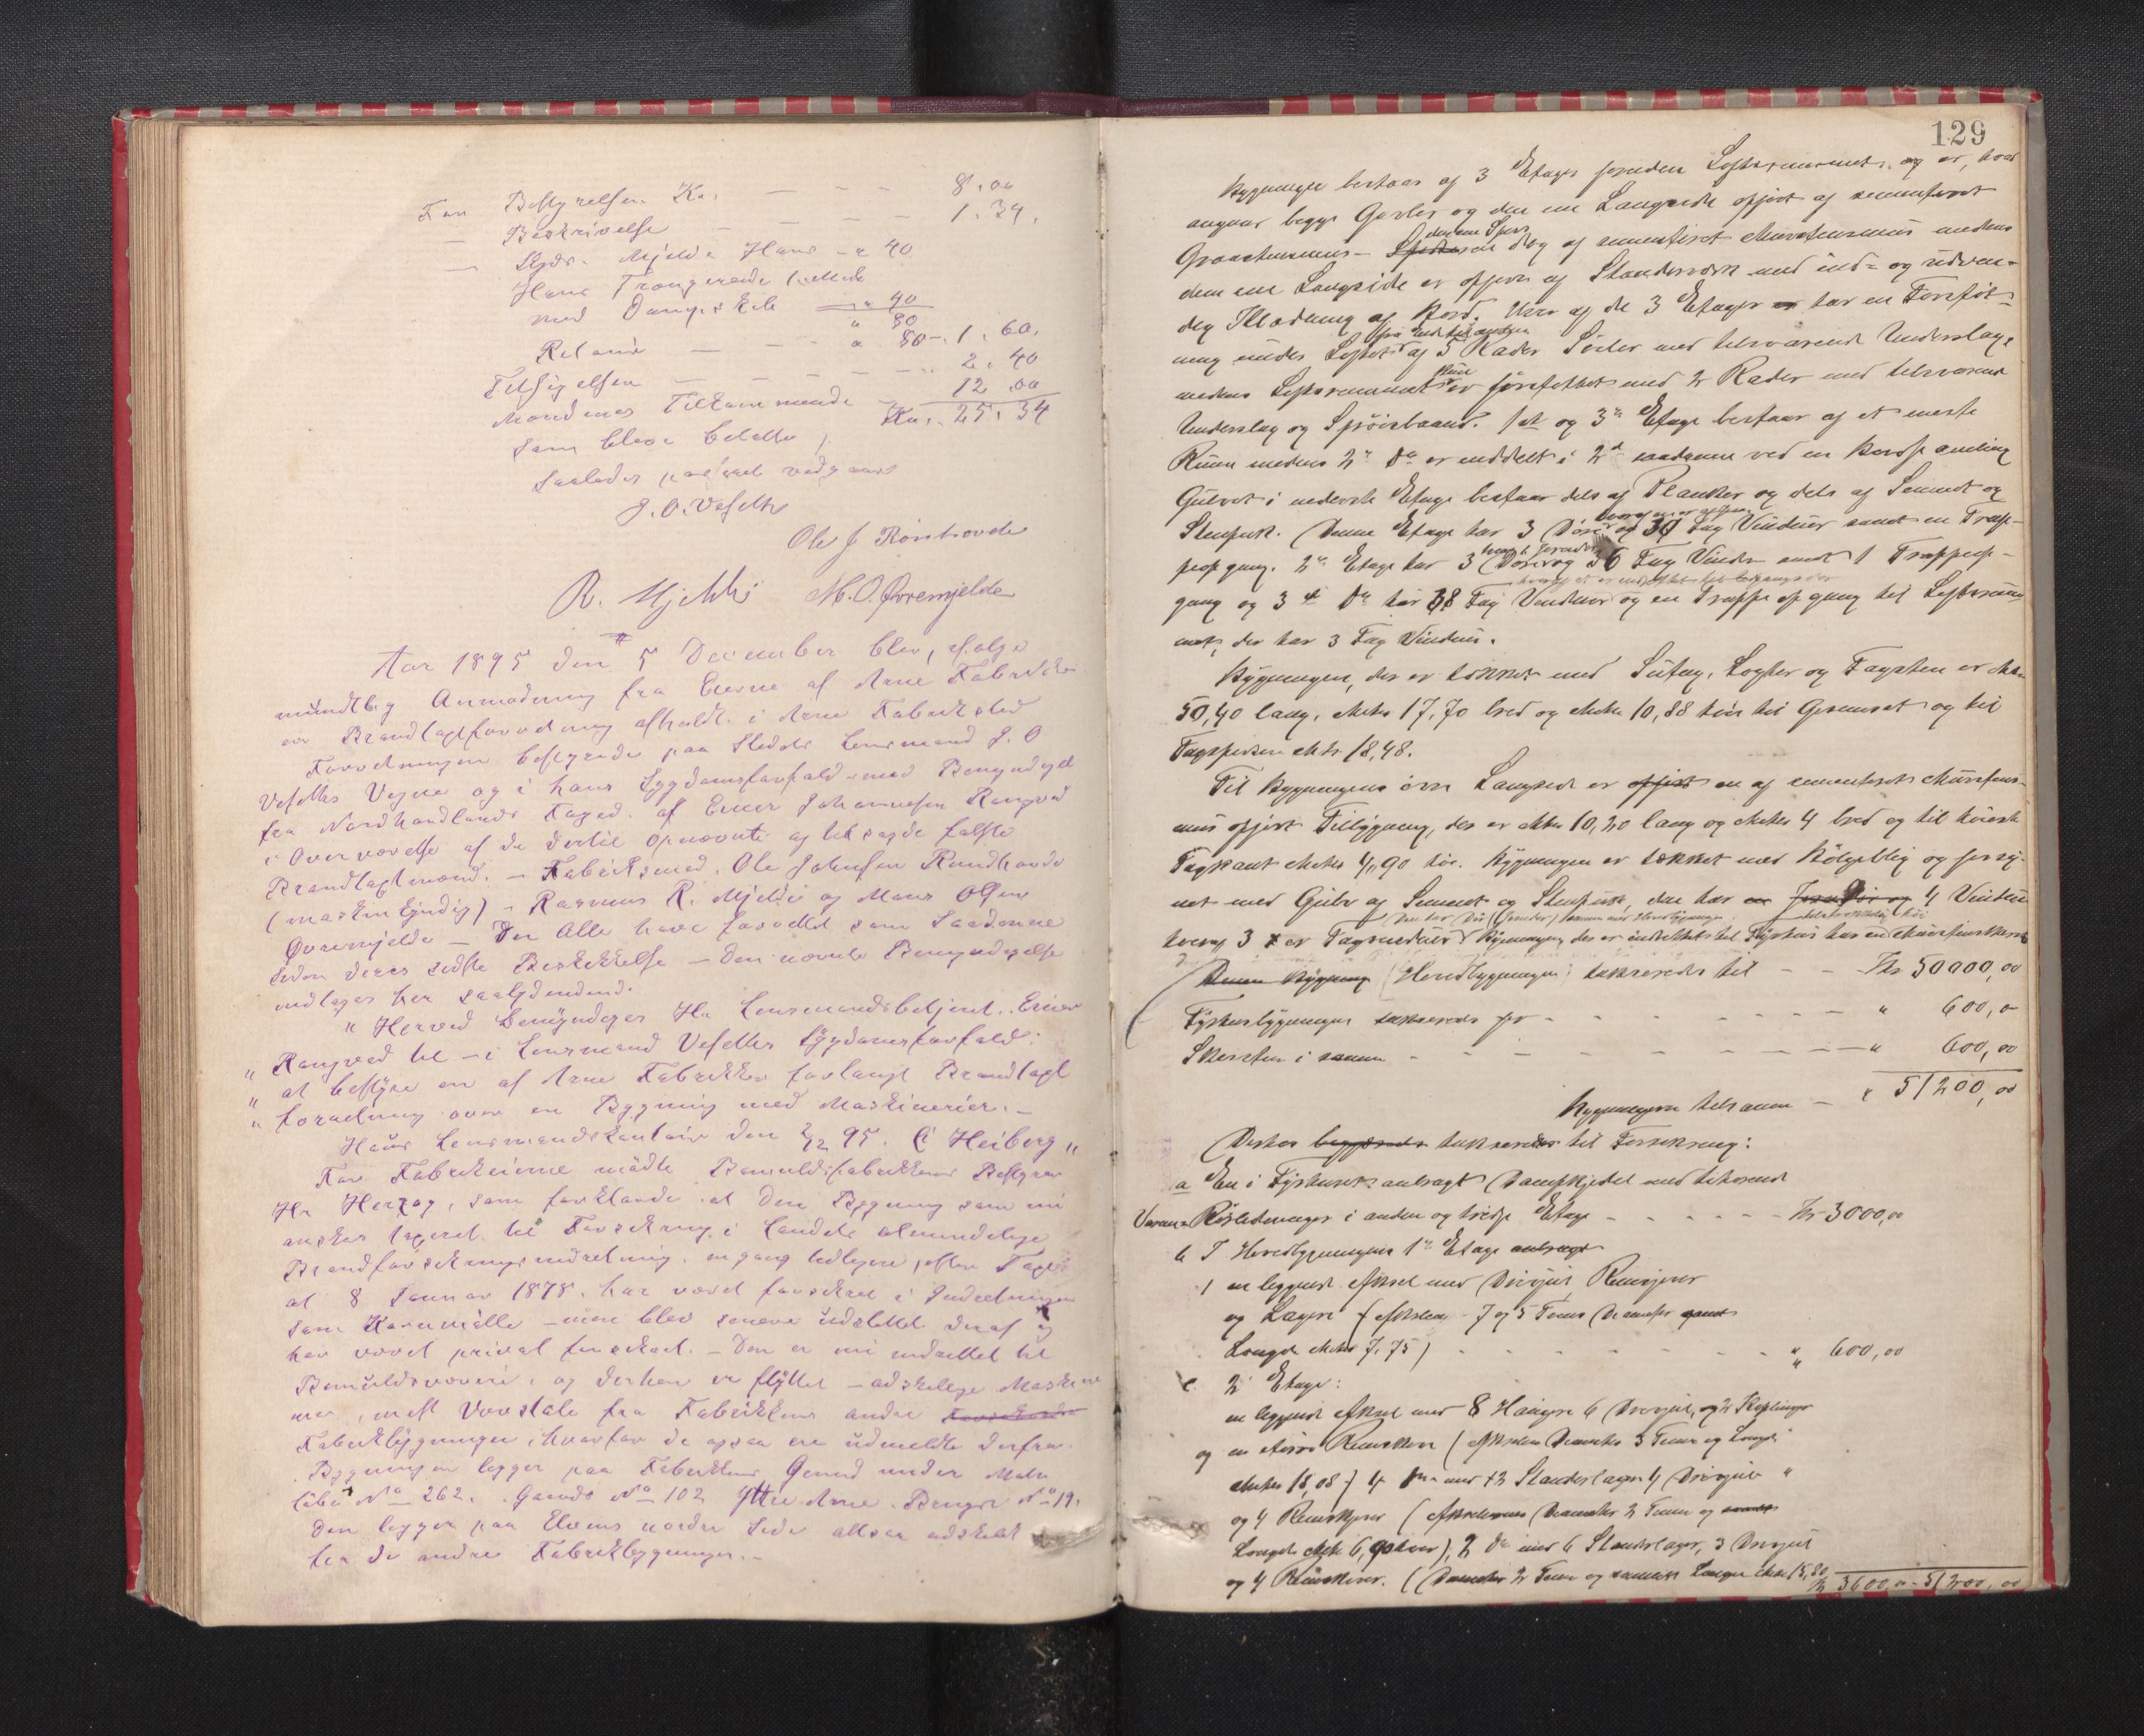 For Bestyrelsen Kr. — — — 8.00
— Beskrivelse — — — 1.34.
— Skyds. Mjelde Haus — " 40
Haus Trengereide
med Dampskib " 40
" 80
Retour — — " 80 — 1.60.
Tilsigelsen — — — — 2.40
Mændenes Tilkommende — 12.00
Kr. 25.34
som bleve betalte
Saaledes passeret vedgaaes
J. O. Vefelth
Ole J Rönhovde
R. Mjelde M. O. Øvremjelde
Aar 1895 den 5 December blev, ifølge
mundtlig Anmodning fra Eierne af Arne Fabrikker
en Brandtaxtforretning afholdt i Arne Fabriksted
Forretningen bestyredes paa Stedets Lensmand J. O
Vefelths Vegne og i hans Sygdomsforfald med Bemyndigelse
fra Nordhordlands Foged, af Einar Johannesen Rongved
i Overværelse af de dertil opnævnte og tilsagde faste
Brandtaxtmænd. — Fabriksmed. Ole Johnsen Rundhovde
(maskinkyndig) — Rasmus R. Mjelde og Mons Olsen
Øvremjelde — Der Alle have forrettet som Saadanne
siden deres sidste Beskikkelse — Den nævnte Bemyndigelse
indtages her saalydende.
" Herved bemyndiges Hr Lensmandsbetjent. Einar
" Rongved til — i Lensmand Vefelths Sygdomsforfald:
" at bestyre en af Arne Fabrikker forlangt Brandtaxt
" forretning over en Bygning med Maskinerier. —
Haus Lensmandskontoir den 2/12 95. C Heiberg "
For Fabrikeierne mödte Bomuldsfabrikkens Bestyrer
Hr Herzog, som forklarede at den Bygning som nu
önskes taxeret til Forsikring i Landets almindelige
Brandforsikringsindretning en gang tidligere, efter Taxt
af 8 Januar 1878. har været forsikret i Indretningen
som Kornmölle — men blev senere udslettet deraf og
har været privat forsikret. — Den er nu indrettet til
Bomuldsvæveri, og derhen er flyttet — adskillige Maskiner
mest Vævstole fra Fabrikkens andre
Fabrikbygninger, hvorfor de ogsaa ere udmeldte derfra.
Bygningen ligger paa Fabrikkens Grund under Matr
No 262. Gaards No 102 Ytre Arne. Brugs No 19.
Den ligger paa Elvens nordre Side altsaa adskilt
fra de andre Fabrikbygninger. —
129
Bygningen bestaar af 3 Etager foruden Loftsrummet, og er, hvad
angaar begge Gavler og den ene Langside opført af sementeret
Graastensmur — dog af sementeret Murstensmur medens
den ene Langside er opført af Standerværk med ind- og udven-
dig Klædning af Bord. Hver af de 3 Etager har en Forstøt-
ning under Loftet af 5 Rader Søiler med tilsvarende Underslag,
medens Loftsrummet er forstøttet med 2 Rader med tilsvarende
Underslag og Sprøisbaand. 1st og 3de Etage bestaar af et eneste
Rum medens 2n Do er inddelt i 2 saadanne ved en Bord
Gulvet i nederste Etage bestaar dels af Planker og dels af Sement og
Stenpuk. Denne Etage har 3 Døre og 30 Fag Vinduer samt en Trap-
peopgang. 2n Etage har 3 Døre og 36 Fag Vinduer samt 1 Trappeop-
gang og 3de Do har 38 Fag Vinduer og en Trappeopgang til Loftsrum-
met, der har 3 Fag Vinduer.
Bygningen, der er tækket med Sutag, Lægter og Tagsten er Meter
50,40 lang, Meter 17,70 bred og Meter 10,88 høi til Gesimset og til
Tagspidsen Mtr 18,48.
Til Bygningens övre Langside er en af sementeret Murstens-
mur opført Tilbygning, der er Meter 10,20 lang og Meter 4 bred og til høieste
Tagkant Meter 4,90 høi. Bygningen er tækket med Bølgeblig og forsy-
net med Gulv af Sement og Stenpuk, den har 4 Vinduer
hvoraf 3 er Tagvinduer Bygningen der er indrettet til Fyrhus har en Murstensskorsten
Hovedbygningen takseredes til — — Kr 50000,00
Fyrhusbygningen takseredes for — — — " 600,00
Skorsten i samme — — — — " 600,00
Bygningerne tilsammen — " 51200,00
Derhos takseredes til Forsikring:
a En i Fyrhuset anbragt Dampkjedel med tilhørende
Varme Rørledninger i anden og tredje Etage — — — Kr 3000,00
b I Hovedbygningens 1ste Etage
1 en liggende Aksel med Drivjul, Remskiver
og Lagere (Akslen 7 og 5 Toms Diameter
Længde Meter 7.75) — — — " 600,00
c. 2 Etage:
en liggende Aksel med 8 Hængere 6 Drivjul, og 2 Koplinger
og en större Remskive (Akslens Diameter 3 Tommer og Længde
Meter 18,08) 4 Do med 12 Standerlager 4 Drivjul "
og 4 Remskiver (Akslernes Diameter 2 Tommer og
Længde Meter 6,90 hver), 2 Do med 6 Standerlager, 3 Drivjul
og 4 Remskiver. (Diameter 2 Tommer og samlet Længde Meter 15,80
Kr 3600,00 — 51200,00